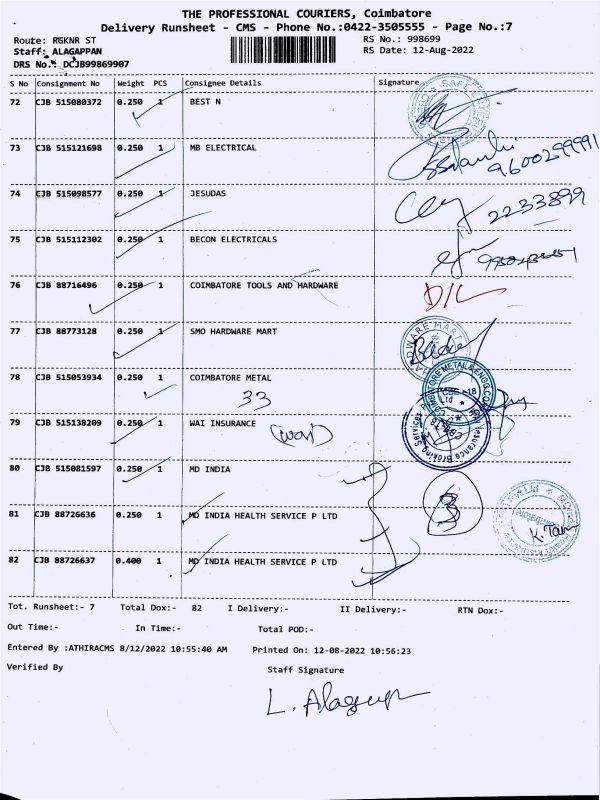 THE PROFESSIONAL COURIERS, Coimbatore
Delivery Runsheet - CMS - Phone No.:0422-3505555 - Page No.:7
Route: RGKNR ST RS No.: 998699
Staff: ALAGAPPAN RS Date: 12-Aug-2022
DRS No.: DCJB99869907
S No Consignment No Weight PCS Consignee Details Signature
72 CJB 515080372 0.250 1 BEST N
73 CJB 515121698 0.250 1 MB ELECTRICAL
9600299991
74 CJB 515098577 0.250 1 JESUDAS
2233899
75 CJB 515112302 0.250 1 BECON ELECTRICALS
76 CJB 88716496 0.250 1 COIMBATORE TOOLS AND HARDWARE D/L
77 CJB 88773128 0.250 1 SMO HARDWARE MART
78 CJB 515053934 0.250 1 COIMBATORE METAL
33
79 CJB 515138209 0.250 1 WAI INSURANCE
80 CJB 515081597 0.250 1 MD INDIA
3
81 CJB 88726636 0.250 1 MD INDIA HEALTH SERVICE P LTD
82 CJB 88726637 0.400 1 MD INDIA HEALTH SERVICE P LTD
Tot. Runsheet:- 7 Total Dox:- 82 I Delivery:- II Delivery:- RTN Dox:-
Out Time:- In Time:- Total POD:-
Entered By :ATHIRACMS 8/12/2022 10:55:40 AM Printed On: 12-08-2022 10:56:23
Verified By Staff Signature
L. Alagup